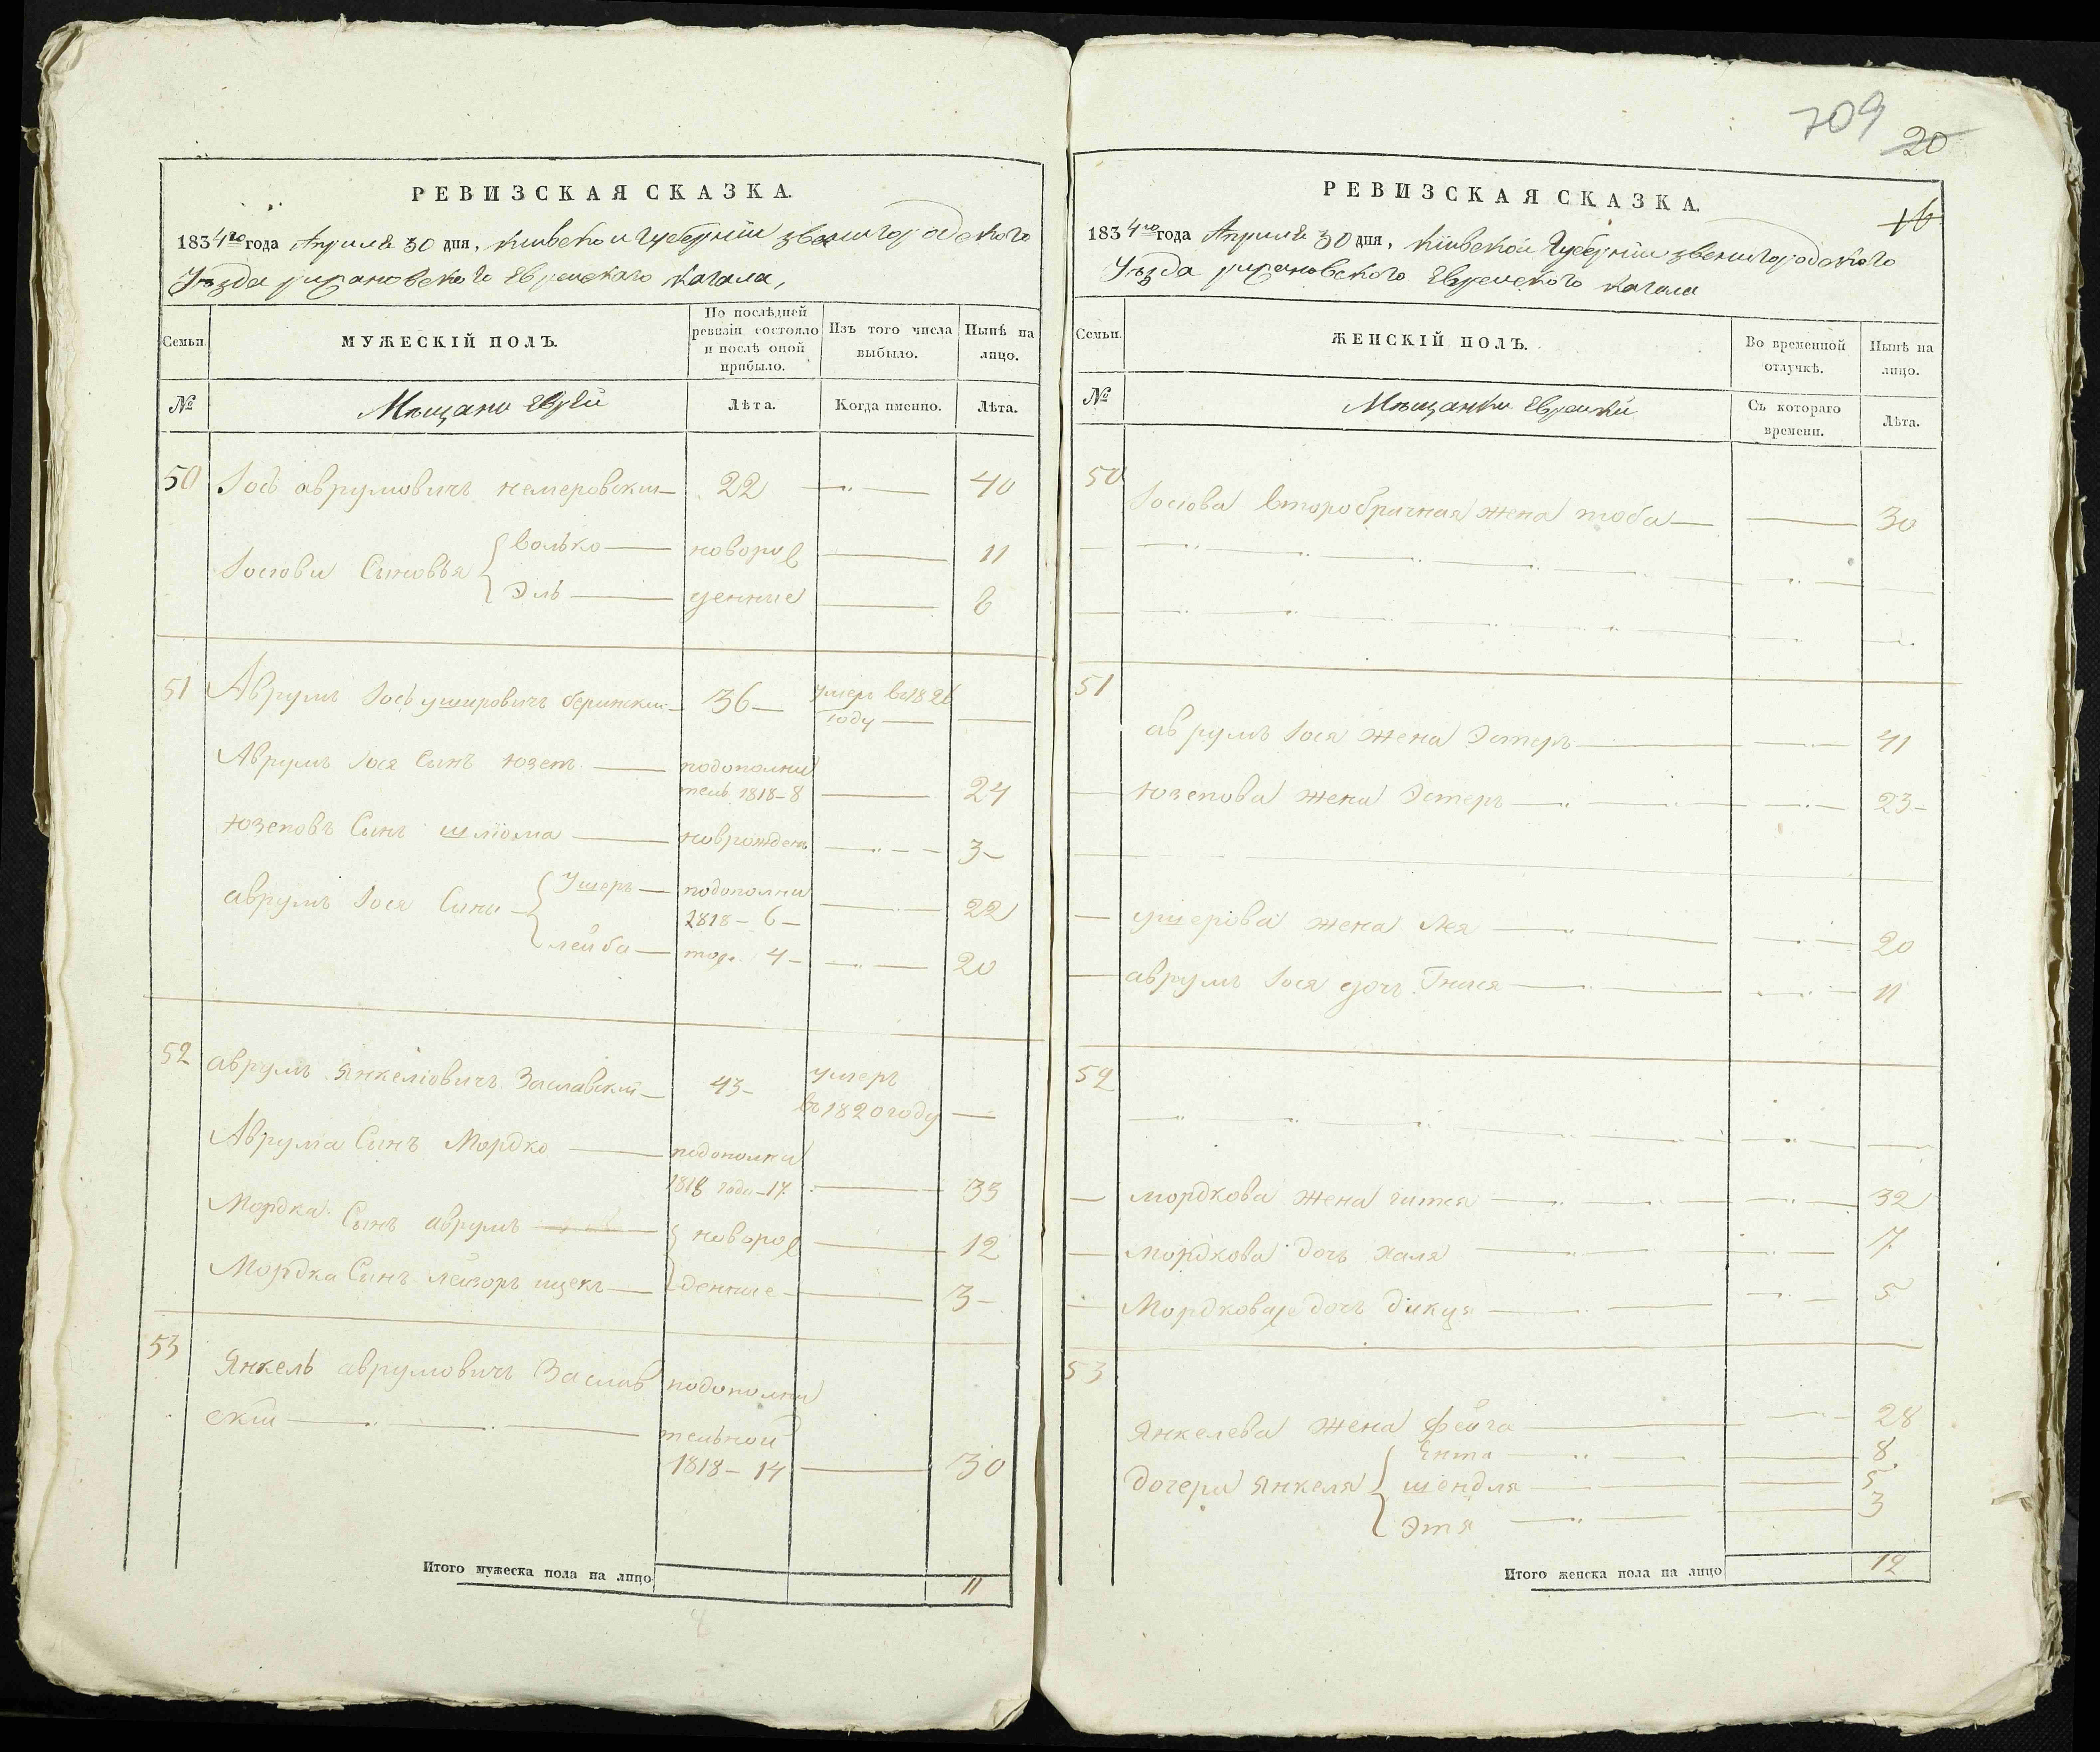 РЕВИЗСКАЯ СКАЗКА.
1834го года Апреля 30 дня, Киевской Губернии звенигородского
Уѣзда рижановского Еврейскаго кагала,
Семьи.
МУЖЕСКІЙ ПОЛЪ.
По послѣдней ревизіи состояло и послѣ оной прибыло.
Изъ того числа выбыло.
Нынѣ на лицо.
№
Мѣщане Евреи
Лѣта.
Когда именно.
Лѣта.
50 Іось аврумовичъ немеровский 22 40
Іосіови Сыновья
волько новорож 11
Эль денные 8
51 Аврумъ Іось ушеровичъ 36 умеръ в 1826
году
Аврумъ Іося Сынъ юзеп подополни
тель 1818-8 24
юзеповъ Сынъ шліома новрожденъ 3
аврумъ Іося Сыни
Ушеръ подополни
1818-6 22
лейба тоже 4 20
52 аврумъ Янкеліовичъ Заславский 43 умеръ
въ 1820 году
Аврума Сынъ Мордко подополни
1818 года-17. 33
Мордка Сынъ аврумъ новорож 12
Мордка Сынъ лейзоръ ицекъ денные 3
53 Янкель аврумовичъ Заслав подополни
ский тельной
1818-14 30
Итого мужеска пола на лицо 11
709
20
16
РЕВИЗСКАЯ СКАЗКА.
1834го года Апреля 30 дня, Кіивской Губерніи звенигородского
Уѣзда рижановского Еврейского кагала
Семьи.
ЖЕНСКІЙ ПОЛЪ.
Во временной отлучкѣ.
Нынѣ на лицо.
№
Мѣщанки Еврейки
Съ котораго времени.
Лѣта.
50
Іосіова второбрачная жена тоба 30
51
аврумъ Іося жена Эстеръ 41
юзепова жена Эстеръ 23
ушерова жена Лея 20
аврумъ Іося дочь 11
52
мордкова жена гитя 32
мордкова дочь халя 7
Мордкова дочь 5
53
Янкелева жена фейга 28
дочери Янкеля
Ента 8
шендля 5
Этя 3
Итого женска пола на лицо 12